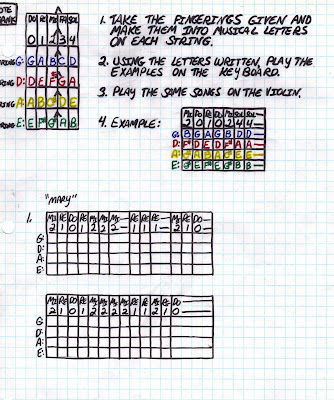 OTE
BANK
DO RE MI FA SOL
0 1 2 3 4
RING G: G A B C D
RING D: D E F# G A
RING A: A B C# D E
RING E: E F# G# A B
1. TAKE THE FINGERINGS GIVEN AND
MAKE THEM INTO MUSICAL LETTERS
ON EACH STRING.
2. USING THE LETTERS WRITTEN, PLAY THE
EXAMPLES ON THE KEYBOARD.
3. PLAY THE SAME SONGS ON THE VIOLIN.
4. EXAMPLE:
2 0 1 0 2 4 4
G: B G A G B D D
D: F# D E D F# A A
A: C# A B A C# E E
E: G# E F# E G# B B
"MARY"
1.
MI RE DO RE MI MI MI— RE RE RE— MI RE DO—
2 1 0 1 2 2 2— 1 1 1— 2 1 0—
G:
D:
A:
E:
MI RE DO RE MI MI MI MI RE RE MI RE DO
2 1 0 1 2 2 2 2 1 1 2 1 0
G:
D:
A:
E: